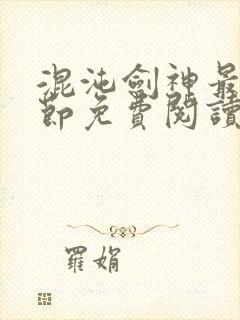 混沌劍神最
節免費閱讀
羅娟